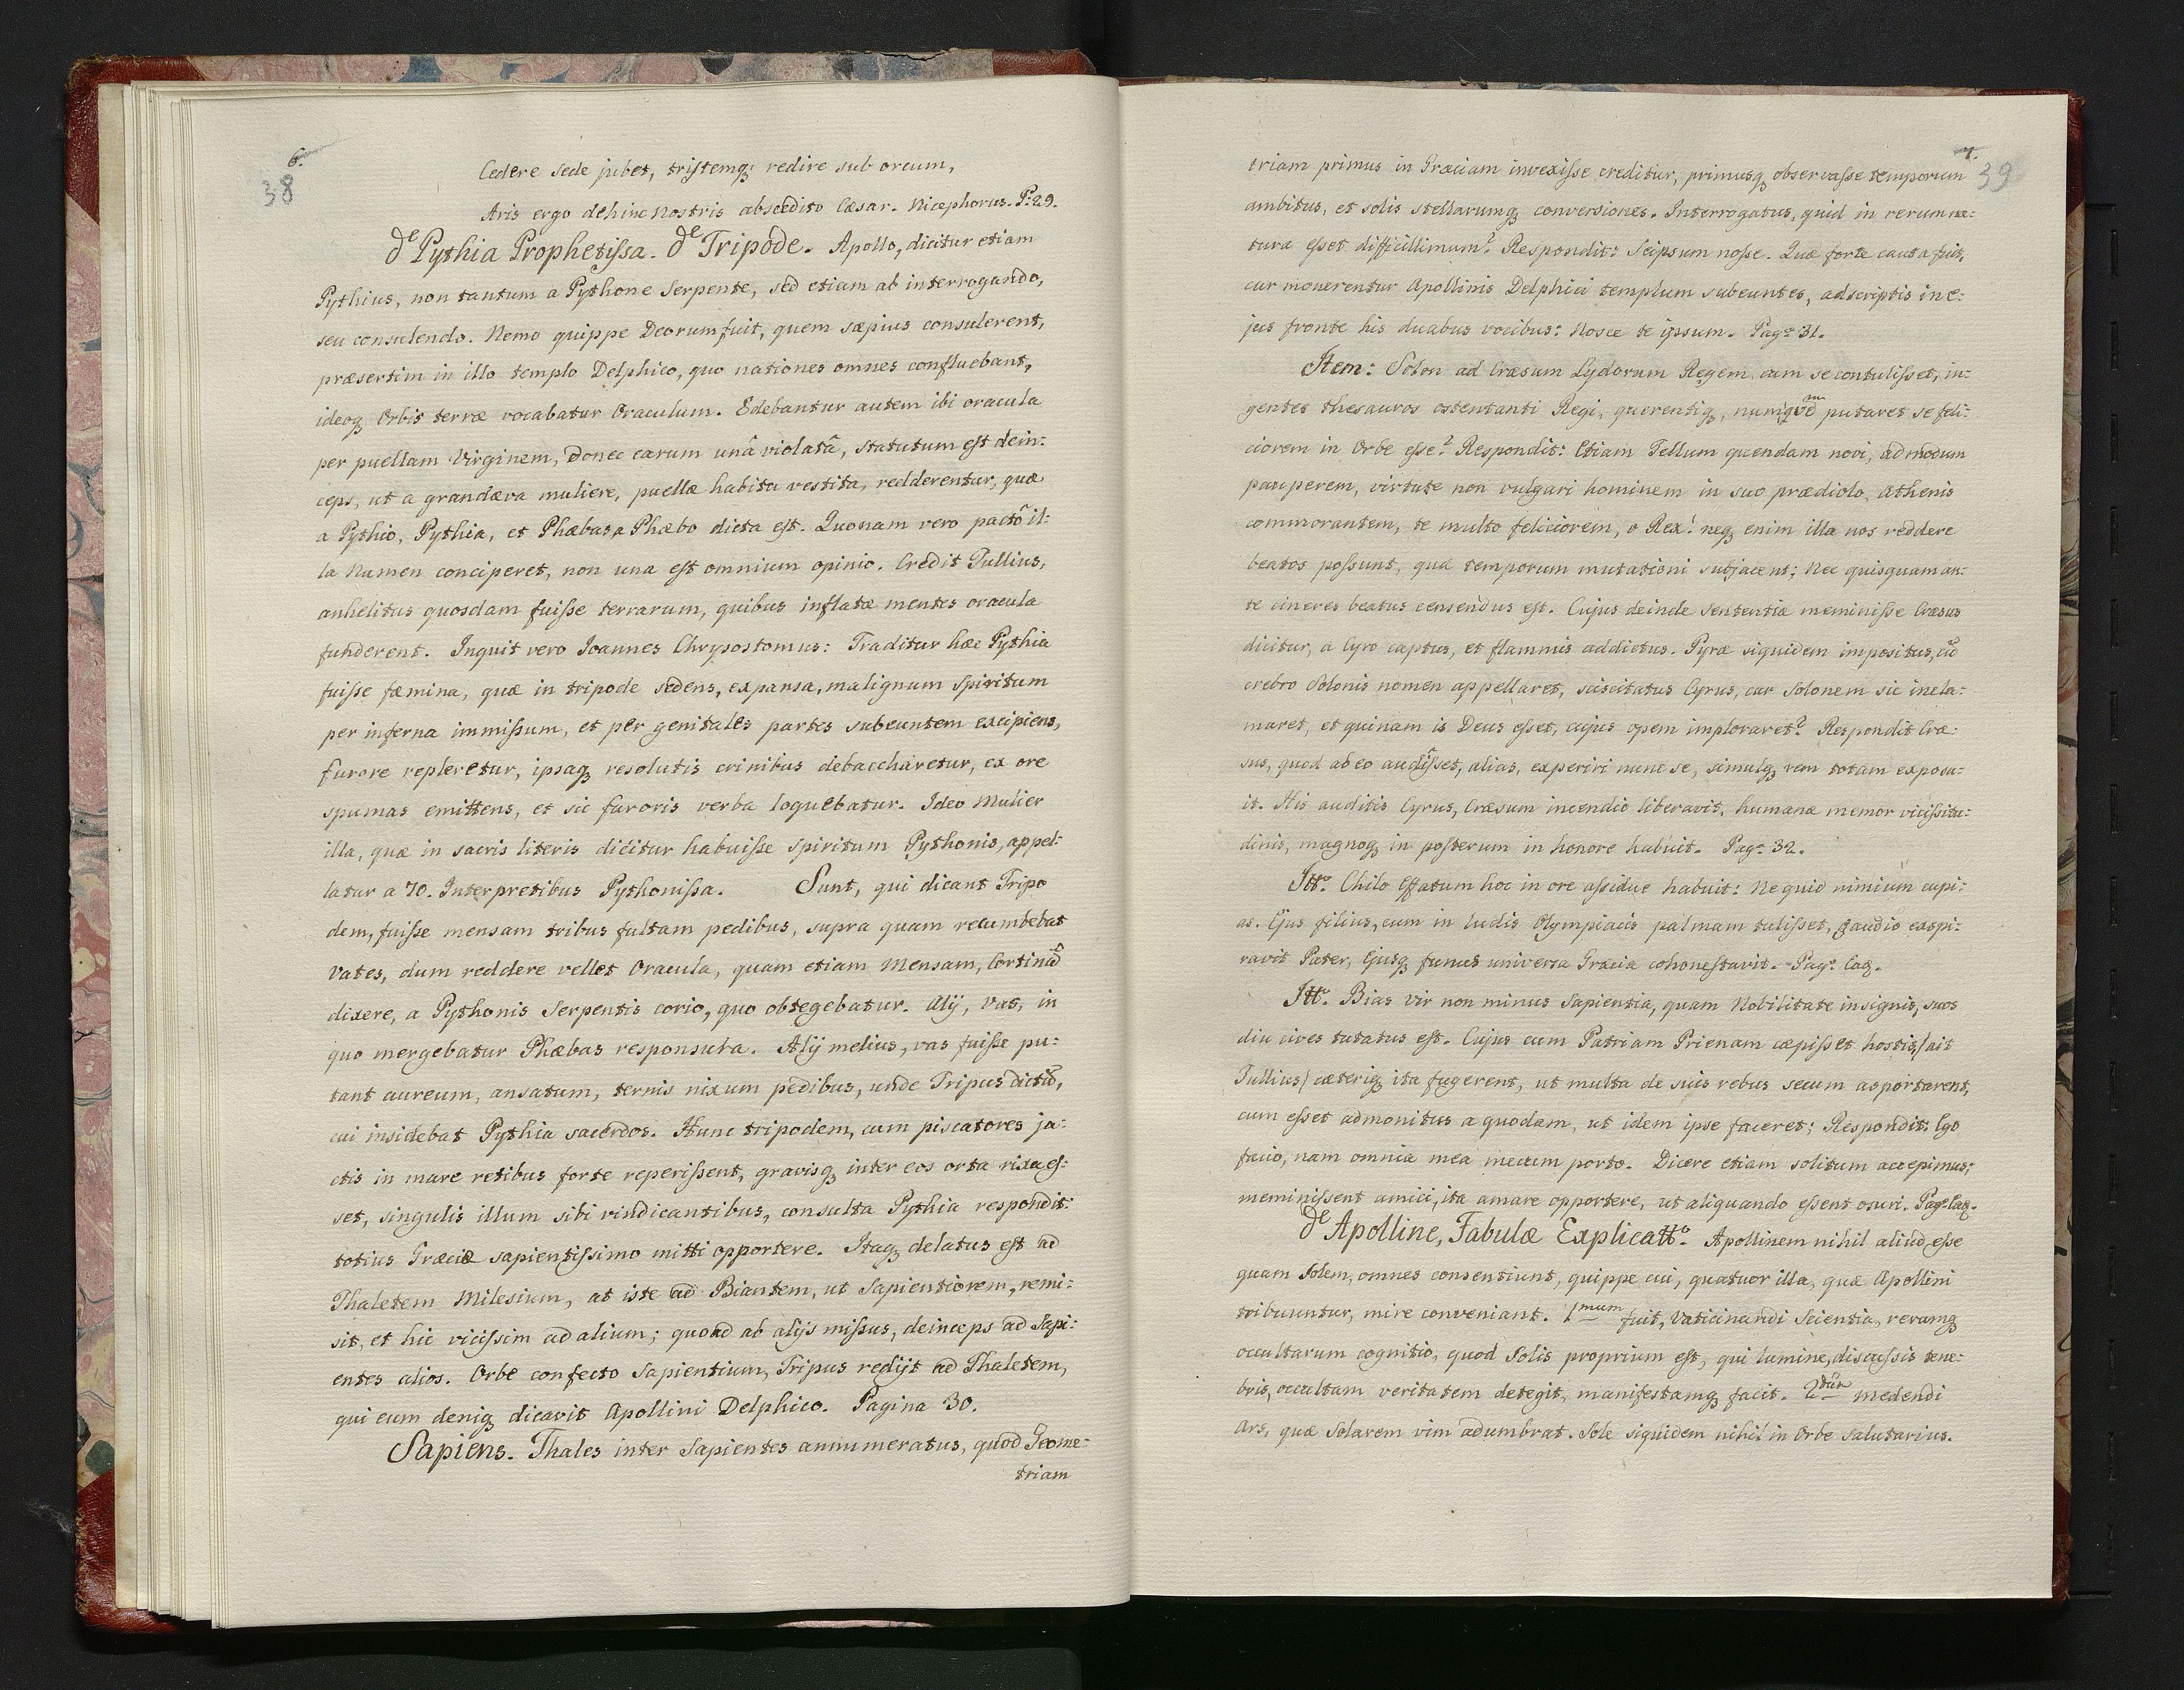 6.
38
Cedere sede jubet, tristemq; redire sub orcum,
Aris ergo dehinc nostris abscedito Cæsar. Nicephorus. P. 29.
de Pythia Prophetissa. de Tripode. Apollo, dicitur etiam
Pythius, non tantum a Pythone Serpente, sed etiam ab interrogando,
seu consulendo. Nemo quippe Deorum fuit, quem sæpius consulerent,
præsertim in illo templo Delphico, quo nationes omnes confluebant,
ideoq; Orbis terræ vocabatur Oraculum. Edebantur autem ibi oracula
per puellam Virginem, Donec earum unâ violatâ, statutum est dein:
ceps, ut a grandæva muliere, puellæ habitu vestita, redderentur, quæ
a Pythio, Pythia, et Phæbas, a Phæbo dicta est. Quonam vero pactô il:
la Numen conciperet, non una est omnium opinio. Credit Tullius,
anhelitus quosdam fuisse terrarum, quibus inflatæ mentes oracula
funderent. Inquit vero Joannes Chrysostomus: Traditur hæc Pythia
fuisse fæmina, quæ in tripode sedens, expansa, malignum spiritum
per inferna immissum, et per genitales partes subeuntem excipiens,
furore repleretur, ipsaq; resolutis crinibus debaccharetur, ex ore
spumas emittens, et sic furoris verba loquebatur. Ideo Mulier
illa, quæ in sacris literis dicitur habuisse spiritum Pythonis, appel:
latur a 70. Interpretibus Pythonissa. Sunt, qui dicant Tripo
dem, fuisse mensam tribus fultam pedibus, supra quam recumbebat
Vates, dum reddere vellet Oracula, quam etiam Mensam, Cortinã
dixere, a Pythonis Serpentis corio, quo obtegebatur. Alij, Vas, in
quo mergebatur Phæbas responsura. Alij melius, vas fuisse pu:
tant aureum, ansatum, ternis nixum pedibus, unde Tripus dictũ,
cui insidebat Pythia sacerdos. Hunc tripodem, cum piscatores ja:
ctis in mare retibus forte reperissent, gravisq; inter eos orta rixa es:
set, singulis illum sibi vindicantibus, consulta Pythia respondit:
totius Græciæ sapientissimo mitti opportere. Itaq; delatus est ad
Thaletem Milesium, at iste ad Biantem, ut Sapientiorem, remi:
sit, et hic vicissim ad alium; quoad ab alijs missus, deinceps ad Sapi:
entes alios. Orbe confecto Sapientium, Tripus redijt ad Thaletem,
qui eum deniq; dicavit Apollini Delphico. Pagina 30.
Sapiens. Thales inter Sapientes annumeratus, quod Geome:
triam
7.
39
triam primus in Græciam invexisse creditur, primusq; observasse temporum
ambitus, et solis stellarumq; conversiones. Interrogatus, quid in rerum na:
tura esset difficillimum? Respondit: Seipsum nosse. Quæ forte causa fuit,
cur monerentur Apollinis Delphici templum subeuntes, adscriptis in e:
jus fronte his duabus vocibus: Nosce te ipsum. Pag. 31.
Item: Solon ad Cræsum Lydorum Regem cum se contulisset, in:
gentes thesauros ostentanti Regi, querentiq; putaret se feli:
ciorem in Orbe esse? Respondit: Etiam Tellum quendam novi, admodum
pauperem, virtute non vulgari hominem in suo prædiolo, Athenis
commorantem, te multo feliciorem, o Rex! neq; enim illa nos reddere
beatos possunt, quæ temporum mutationi subjacent; Nec quisquam an:
te cineres beatus censendus est. Cujus deinde sententiæ meminisse Cræsus
dicitur, a Cyro captus, et flammis addictus. Pyræ siquidem impositus, cũ
crebro Solonis nomen appellaret, sciscitatus Cyrus, cur Solonem sic incla:
maret, et quinam is Deus esset, cujus opem imploraret? Respondit Cræ:
sus, quod ab eo audisset, alias, experiri nunc se, simulq; rem totam exposu:
it. His auditis Cyrus, Cræsum incendio liberavit, humanæ memor vicissitu:
dinis, magnoq; in posterum in honore habuit. Pag. 32.
Itt. Chilo Effatum hoc in ore assidue habuit: Ne quid nimium cupi:
as. Ejus filius, cum in ludis Olympiacis palmam tulisset, gaudio exspi:
ravit Pater, Ejusq; funus universa Græcia cohonestavit. Pag. Eaq.
Itt. Bias Vir non minus Sapientia, quam Nobilitate insignis, suos
diu cives tutatus est. Cujus cum Patriam Prienam cæpisset hostis, /ait
Tullius/ cæteriq; ita fugerent, ut multa de suis rebus secum asportarent,
cum esset admonitus a quodam, ut idem ipse faceret; Respondit: Ego
facio, nam omnia mea mecum porto. Dicere etiam solitum accepimus;
meminissent amici, ita amare opportere, ut aliquando essent osuri. Pag. Eaq.
de Apolline, Fabulæ Explicatt.o Apollinem nihil aliud esse
quam Solem, omnes consentiunt, quippe cui, quatuor illa, quæ Apollini
tribuuntur, mire conveniant. 1mum fuit, Vaticinandi Scientia, rerumq;
occultarum cognitio, quod Solis proprium est, qui lumine, discussis tene:
bris, occultam veritatem detegit, manifestamq; facit. 2dũm medendi
Ars, quæ Solarem vim adumbrat. Sole siquidem nihil in Orbe salutarius.